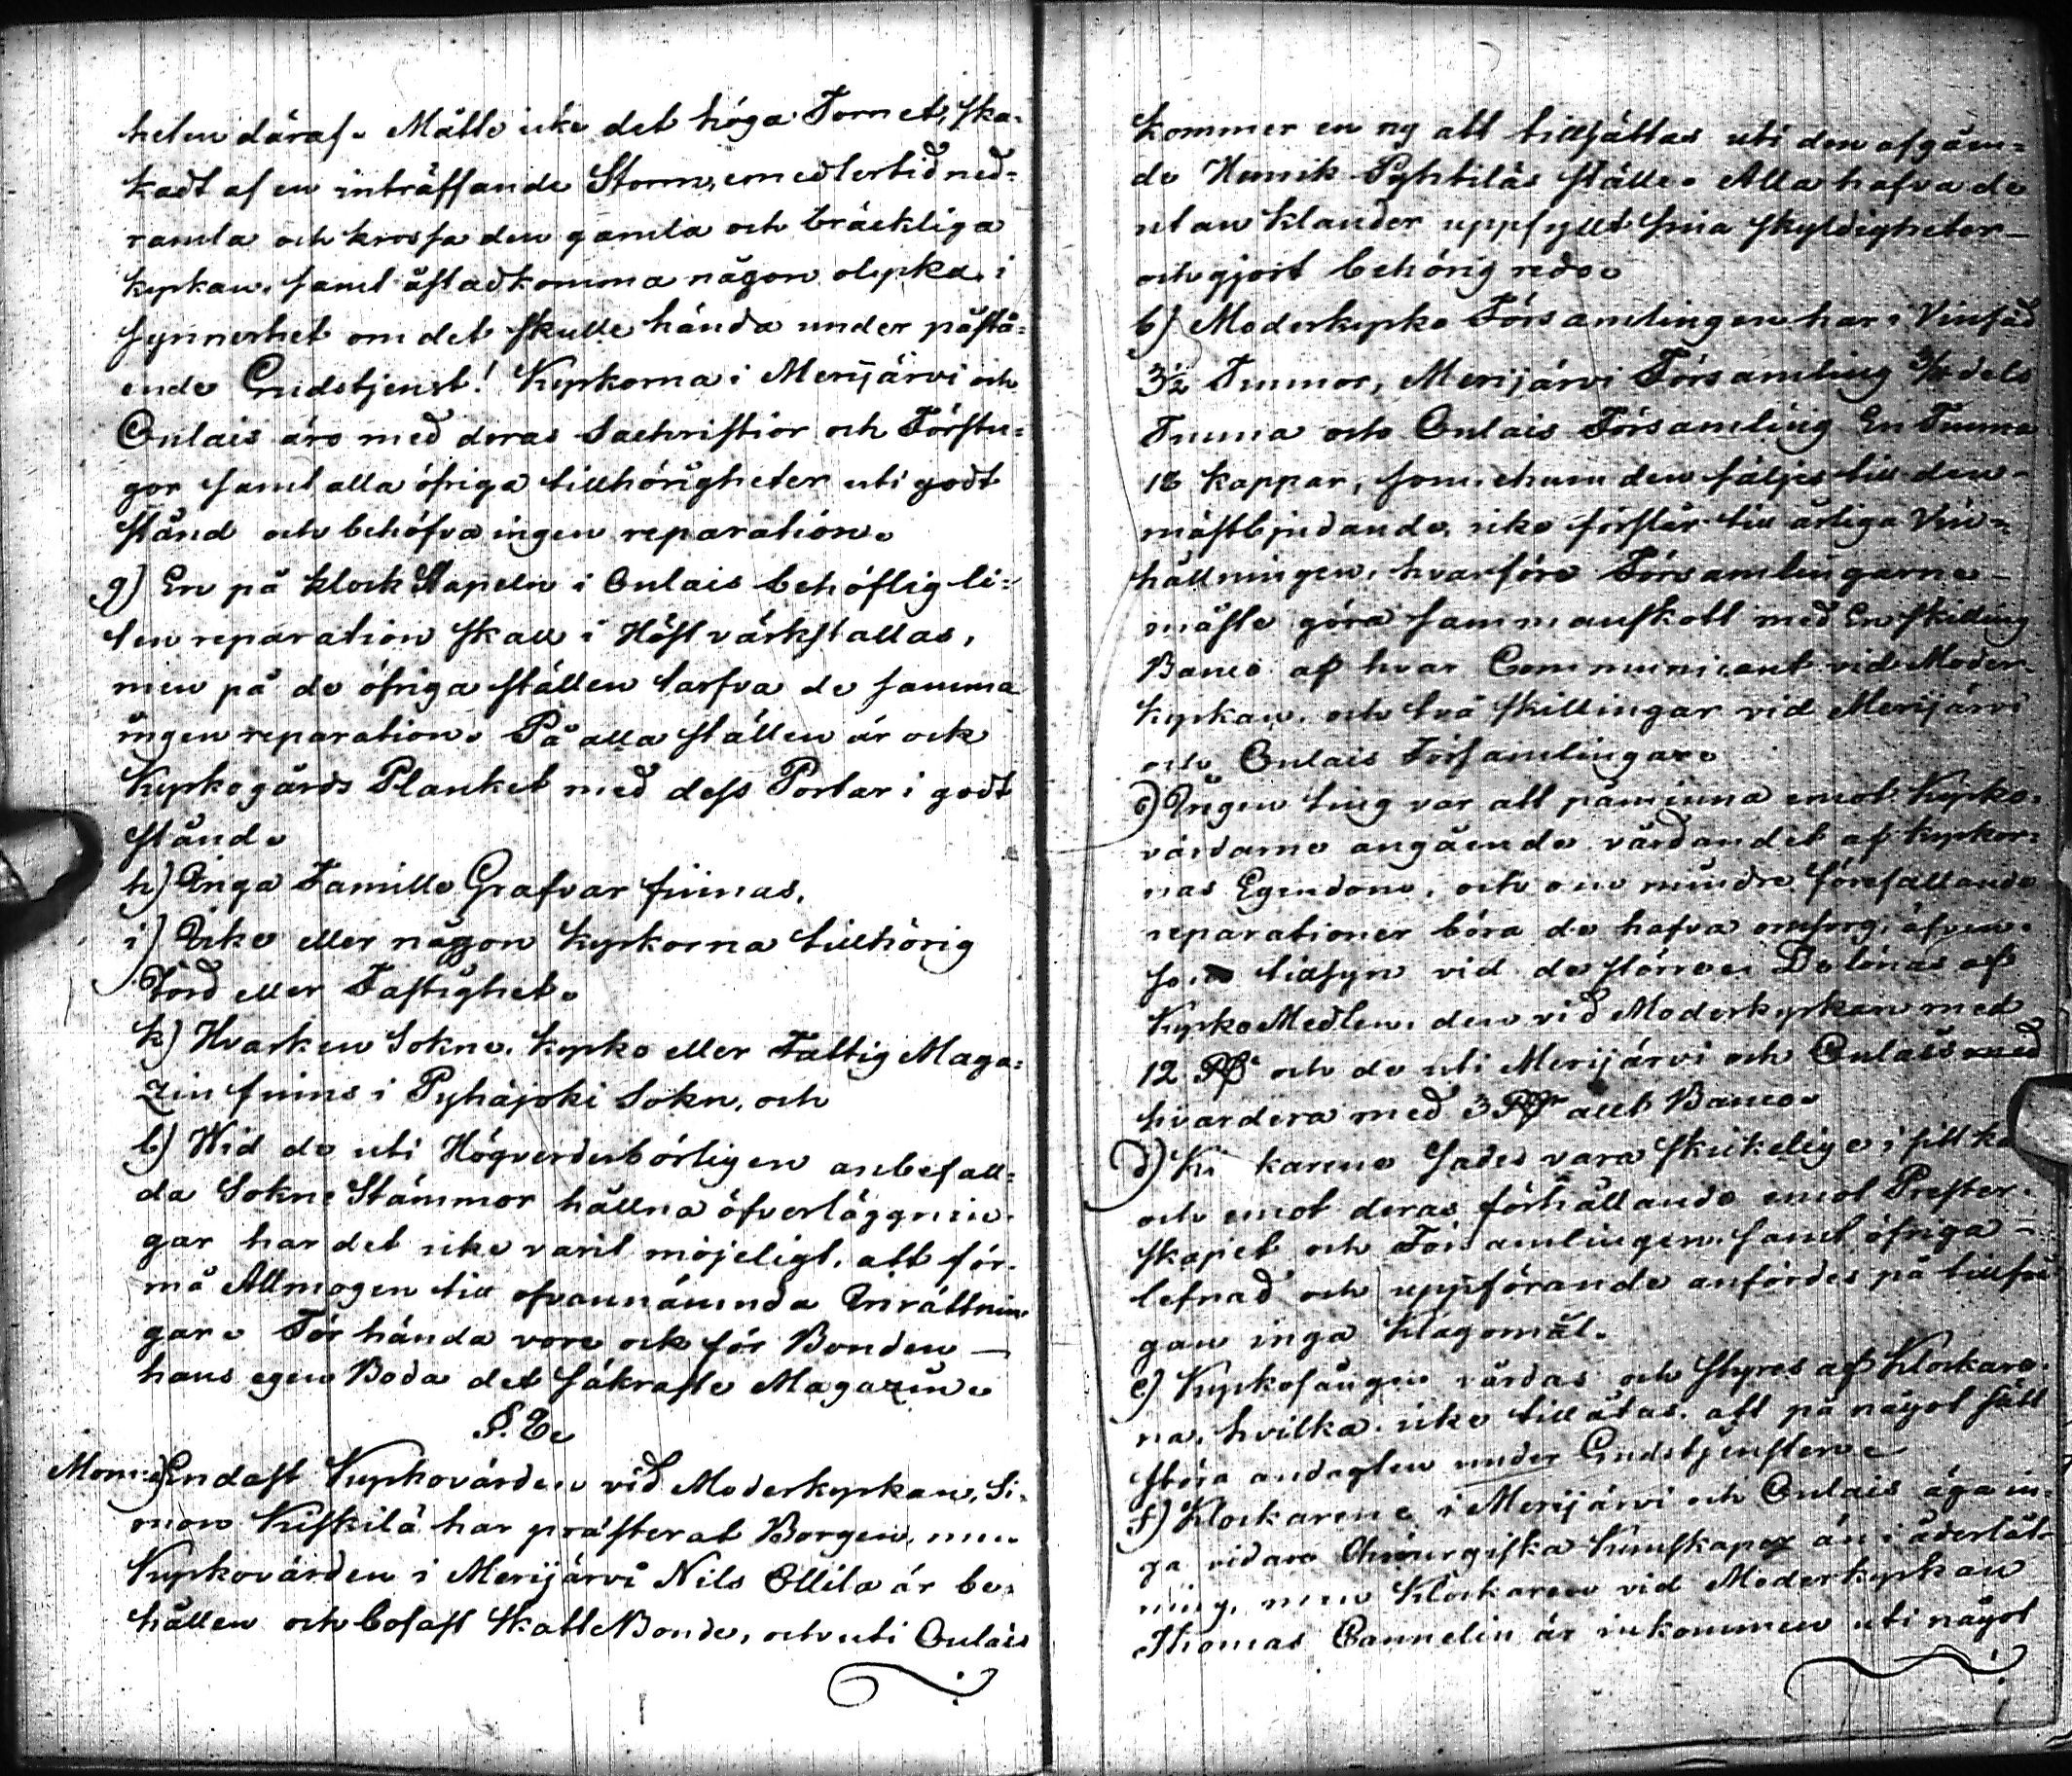 heten däraf. Måtte icke det höga Tornet, ska-
kadt af en inträffande Storm, emedlertid ned-
ramla och krossa den gamla och bräckliga
kyrkan, samt åstadkomma någon olycka, i
synnerhet om det skulle hända under påstå-
ende Gudstjenst! Kyrkorna i Merijärvi och
Oulais äro med deras Sachristior och Förstu-
gor samt alla öfriga tillhörigheter uti godt
stånd och behöfva ingen reparation.
g) En på klock Stapeln i Oulais behöflig li-
ten reparation skall i Höst värkställas,
men på de öfriga ställen tarfva de samma
ingen reparation. På alla ställen är ock
Kyrkogårds Planket med dess Portar i godt
stånd.
h) Inga Famille Grafvar finnas.
i) Icke eller någon kyrkorna tillhörig
Jord eller Fastighet.
k) Hvarken Sokne, kyrko eller Fattig Maga-
zin finns i Pyhäjoki Sokn, och
l) Wid de uti Högverdeubörligen anbefall-
da Sokne Stämmor hållna öfverläggnin-
gar har det icke varit möjeligt, att för-
må Allmogen till ofvannämnda Inrättnin-
gar. Törhända vore ock för Bonden
hans egen Boda det säkraste Magazin.
§. 2.
Mom: a) Endast Kyrkovärden vid Moderkyrkan, Si-
mon Kiskilä har præsterat Borgen, men
Kyrkovärden i Merijärvi Nils Ollila är be-
hållen och bofast Skatte Bonde, och uti Oulais
kommer en ny att tillsättas uti den afgåen-
de Henrik Pyhtiläs ställe. Alla hafva de
utan klander uppfyllt sina skyldigheter
och gjort behörig redo.
b) Moderkyrko Församlingen har i Vinsäd
3½ Tunnor, Merijärvi Församling 3/4 dels
Tunna och Oulais Församling En Tunna
18 kappar, som, ehuru den säljes till den
mästbjudande, icke förslår till årliga Vin-
hållningen, hvarföre Församlingarne
måste göra sammanskott med En skilling
Banco af hvar Communicant vid Moder
kyrkan, och två skillingar vid Merijärvi
och Oulais Församlingar.
c) Ingen ting var att påminna emot Kyrko-
värdarne angående vårdandet af kyrkor-
nas Egendom, och om mindre förefallande
reparationer böra de hafva omsorg, äfven-
som tillsyn vid de större. De lönas af
Kyrko Medlen, den vid Moderkyrkan med
12 Rd. och de uti Merijärvi och Oulais med
hvardera med 3 Rd. allt Banco.
d) karene sades vara skickelige i sitt
och emot deras förhållande emot Prester-
skapet och Församlingen, samt öfriga
lefnad och uppförande anfördes på tillfrå-
gan inga klagomål.
e) Kyrkosången vårdas och styres af Klockare-
na, hvilka icke tillåtas, att på något sätt
störa andagten under Gudstjensten.
f) Klockarene i Merijärvi och Oulais äga in-
ga vidare Chirurgiska kunskaper än i åderlåt-
ning, men Klockaren vid Moderkyrkan
Thomas Cannelin är inkommen uti något